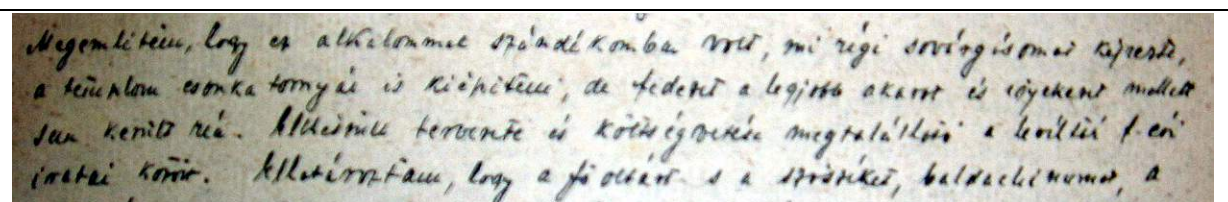 Megemlítem, hogy ez alkalommal szándékomba volt, mi régi sovárgásomat képezte,
a templom csonka tornyát is kiépíteni, de fedezet a legjobb akarat és igyekezet mellett
sem került reá. Elkészült tervezete és költségvetése megtalálható a levéltár f. évi
iratai között. Elhatároztam, hogy a fő oltárt s a szószéket, baldachinumot, a